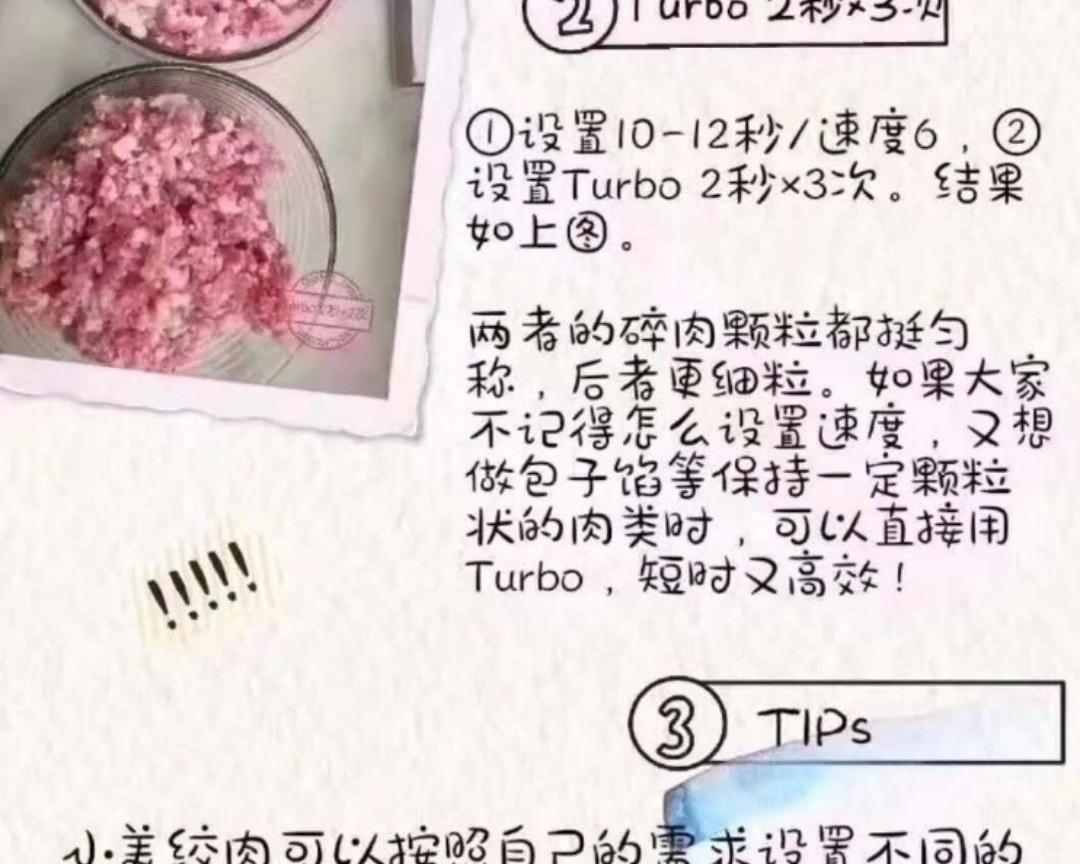 2 Turbo 2秒×3次
①设置10-12秒/速度6，②
设置Turbo 2秒×3次。结果
如上图。
两者的碎肉颗粒都挺匀
称，后者更细粒。如果大家
不记得怎么设置速度，又想
做包子馅等保持一定颗粒
状的肉类时，可以直接用
Turbo，短时又高效！
!!!!!
3 TIPs
小美绞肉可以按照自己的需求设置不同的